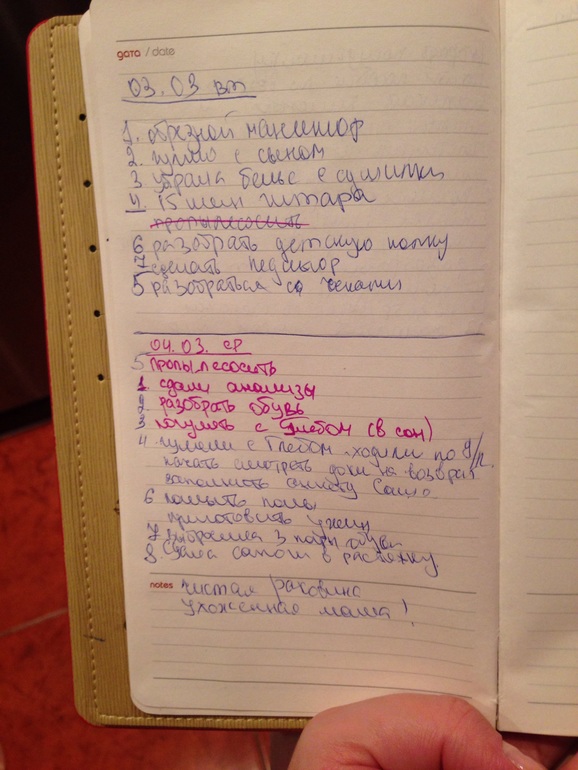 дата / date
03.03 вт
1. обрезной маникюр
2. гуляю с сыном
3 убрала белье с сушилки
4. 15 мин гитара
пропылесосить
6 разобрать детскую полку
7 сделать педикюр
5 разобраться со чеками
04.03. ср
5 пропылесосить
1 сдали анализы
2 разобрать обувь
3 погулять с Глебом (в сон)
4 гуляли с Глебом. ходили по
начать смотреть доки на возврат
заполнить анкету
6 помыть полы
приготовить ужин
7 выбросила 3 пары обуви
8 сдала сапоги в растяжку
notes чистая раковина
ухоженная мама!